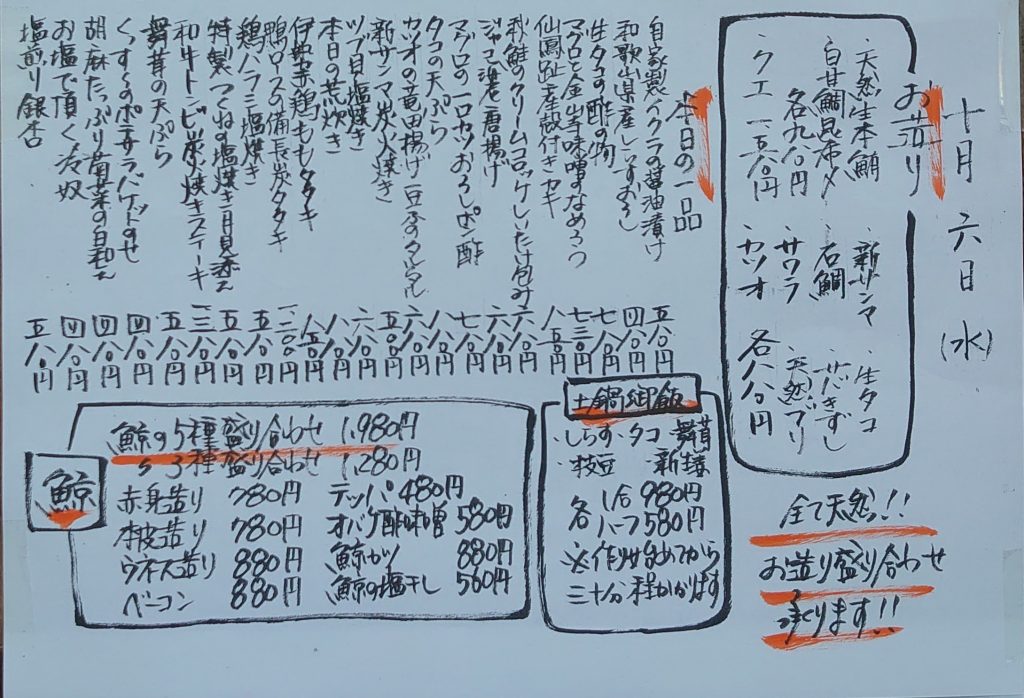 十月 六日 (水)
お造り
・天然生本鮪 ・新サンマ ・生タコ
・白甘鯛昆布〆 ・石鯛 ・サバきずし
各九八〇円 ・サワラ ・天然ブリ
・クエ 一、一五八〇円 ・カツオ 各八八〇円
全て天然!!
お造り盛り合わせ
承ります!!
本日の一品
自家製イクラの醤油漬け 五八〇円
和歌山県産しらすおろし 四八〇円
生タコの酢の物 七八〇円
マグロと金山寺味噌のなめろう 七三〇円
仙鳳趾産殻付きカキ 八五〇円
秋鮭のクリームコロッケしいたけ包み 六八〇円
ジャコ葱唐揚げ 六八〇円
マグロの一口カツおろしポン酢 七八〇円
タコの天ぷら 八八〇円
カツオの竜田揚げ 六八〇円
新サンマ炭火焼き 五八〇円
ツブ貝塩焼き 六八〇円
本日の荒炊き 八八〇円
伊勢赤鶏ももタタキ 八五〇円
鴨ロースの備長炭タタキ 一、二〇〇円
鶏ハラミ塩焼き 五八〇円
特製つくねの塩焼き月見添え 五八〇円
和牛トンビ炭火焼きステーキ 一、三八〇円
舞茸の天ぷら 五八〇円
くんすくのポテサラバケットのせ 四八〇円
胡麻たっぷり菊菜の白和え 四八〇円
お塩で頂く冷奴 四八〇円
塩煎り銀杏 五八〇円
土鍋御飯
・しらす ・タコ ・舞茸
・枝豆 ・新生姜
各 1合 980円
ハーフ 580円
※作り始めてから
三十分程かかります
鯨
鯨の5種盛り合わせ 1,980円
〃 3種盛り合わせ 1,280円
赤身造り 780円 テッパ 480円
本皮造り 780円 オバケ酢味噌 580円
ウネス造り 880円 鯨カツ 880円
ベーコン 880円 鯨の塩干し 560円